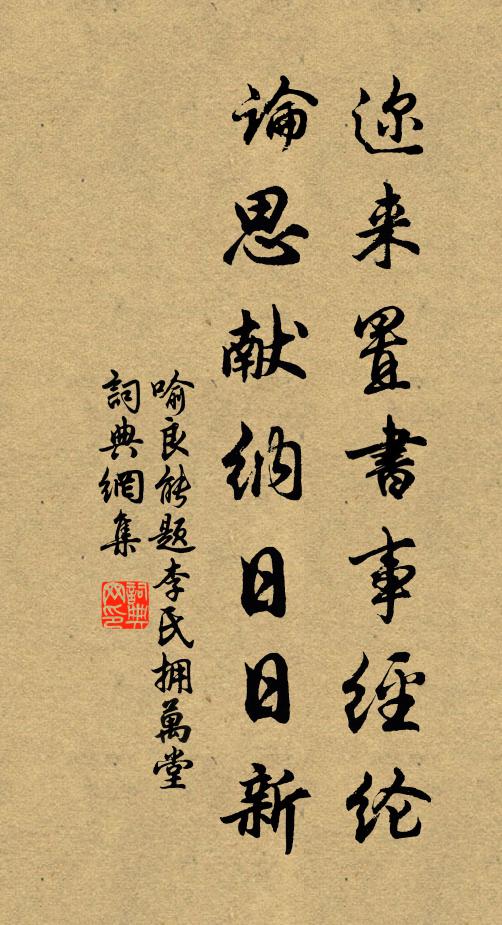 迩来置書事經纶
論思献納日日新
喻良能题李氏拥萬堂
詞典網集
詞典网印